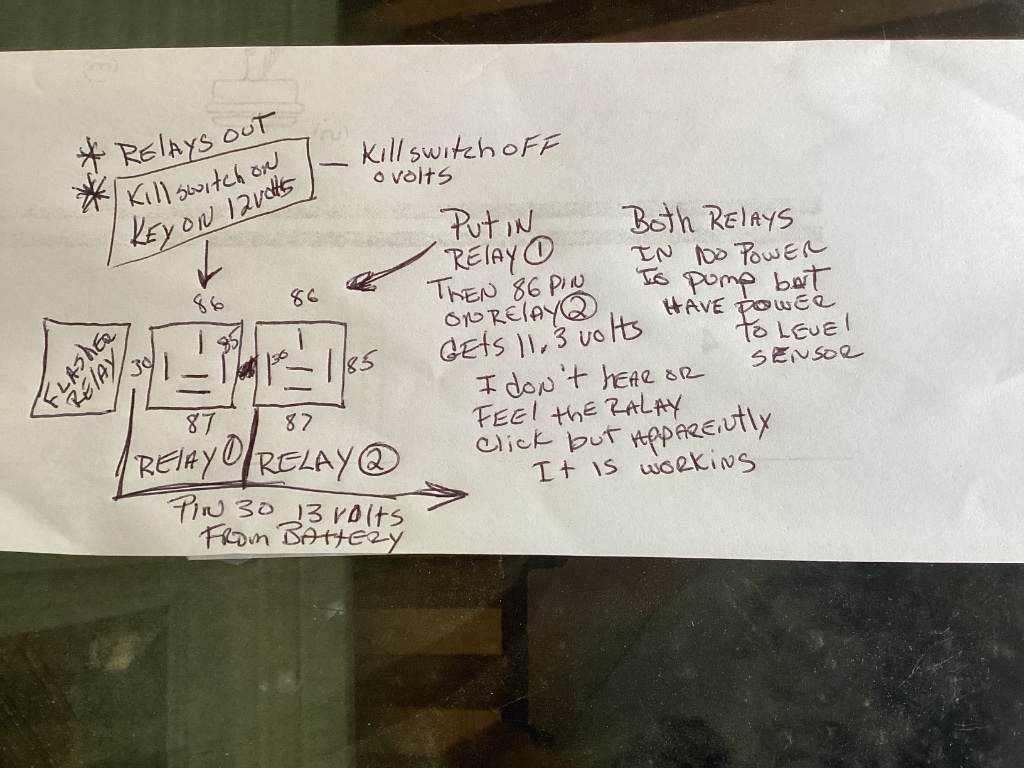 * RELAYS OUT
* Kill switch on
KEY ON 12 volts
— Kill switch OFF
0 volts
Put IN
RELAY ①
THEN 86 PIN
ON RELAY ②
GETS 11.3 volts
I don't HEAR OR
FEEl thE RALAY
Click but APPARENtly
It IS WORKING
Both RELAYS
IN NO POWER
to pump but
HAVE POWER
to LEVEl
SENSOR
86
86
FLASHER
RELAY
30
85
30
85
87
87
RELAY ①
RELAY ②
PIN 30 13 VOLTS
FROM BATTERY